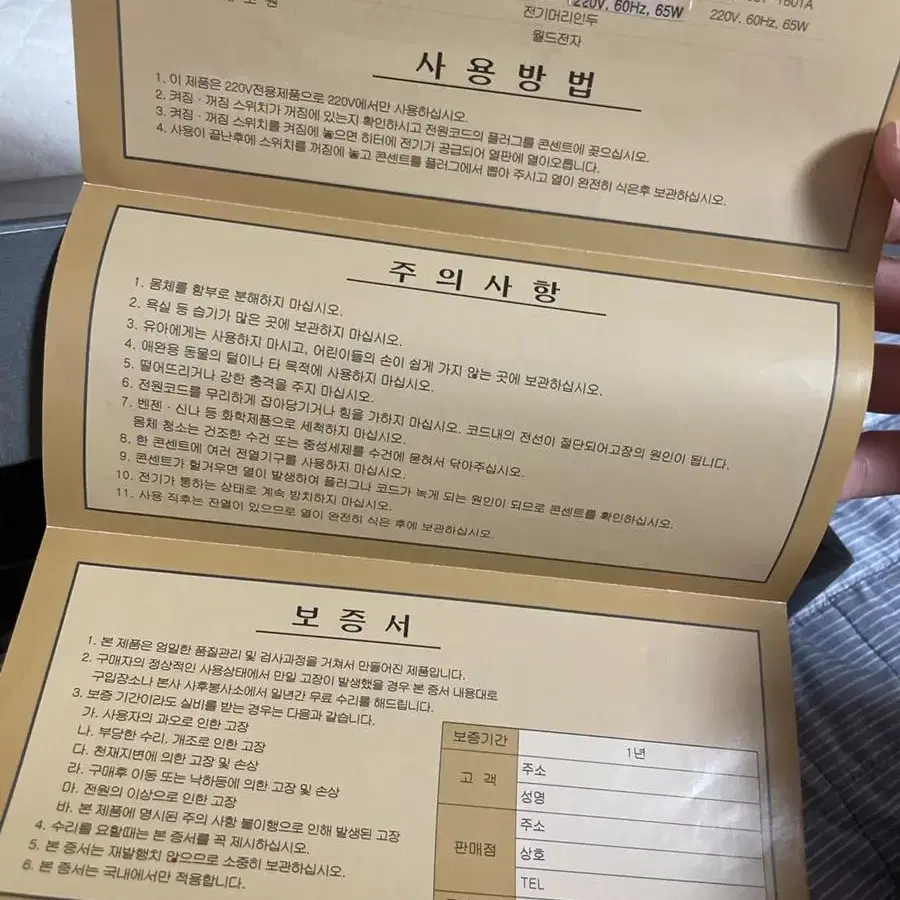 220V, 60Hz, 65W
220V. 60Hz, 65W
전기머리인두
월드전자
사용방법
1. 이 제품은 220V전용제품으로 220V에서만 사용하십시오.
2. 켜짐 · 꺼짐 스위치가 꺼짐에 있는지 확인하시고 전원코드의 플러그를 콘센트에 꽂으십시오.
3. 켜짐 · 꺼짐 스위치를 켜짐에 놓으면 히터에 전기가 공급되어 열판에 열이오릅니다.
4. 사용이 끝난후에 스위치를 꺼짐에 놓고 콘센트를 플러그에서 뽑아 주시고 열이 완전히 식은후 보관하십시오.
주의사항
1. 몸체를 함부로 분해하지 마십시오.
2. 욕실 등 습기가 많은 곳에 보관하지 마십시오.
3. 유아에게는 사용하지 마시고, 어린이들의 손이 쉽게 가지 않는 곳에 보관하십시오.
4. 애완용 동물의 털이나 타 목적에 사용하지 마십시오.
5. 떨어뜨리거나 강한 충격을 주지 마십시오.
6. 전원코드를 무리하게 잡아당기거나 힘을 가하지 마십시오. 코드내의 전선이 절단되어고장의 원인이 됩니다.
7. 벤젠 · 신나 등 화학제품으로 세척하지 마십시오.
몸체 청소는 건조한 수건 또는 중성세제를 수건에 묻혀서 닦아주십시오.
8. 한 콘센트에 여러 전열기구를 사용하지 마십시오.
9. 콘센트가 헐거우면 열이 발생하여 플러그나 코드가 녹게 되는 원인이 되므로 콘센트를 확인하십시오.
10. 전기가 통하는 상태로 계속 방치하지 마십시오.
11. 사용 직후는 잔열이 있으므로 열이 완전히 식은 후에 보관하십시오.
보증서
1. 본 제품은 엄밀한 품질관리 및 검사과정을 거쳐서 만들어진 제품입니다.
2. 구매자의 정상적인 사용상태에서 만일 고장이 발생했을 경우 본 증서 내용대로
구입장소나 본사 사후봉사소에서 일년간 무료 수리를 해드립니다.
3. 보증 기간이라도 실비를 받는 경우는 다음과 같습니다.
가. 사용자의 과오로 인한 고장
나. 부당한 수리, 개조로 인한 고장
다. 천재지변에 의한 고장 및 손상
라. 구매후 이동 또는 낙하등에 의한 고장 및 손상
마. 전원의 이상으로 인한 고장
바. 본 제품에 명시된 주의 사항 불이행으로 인해 발생된 고장
4. 수리를 요할때는 본 증서를 꼭 제시하십시오.
5. 본 증서는 재발행치 않으므로 소중히 보관하십시오.
6. 본 증서는 국내에서만 적용합니다.
보증기간 1년
고 객 주소
성명
판매점 주소
상호
TEL